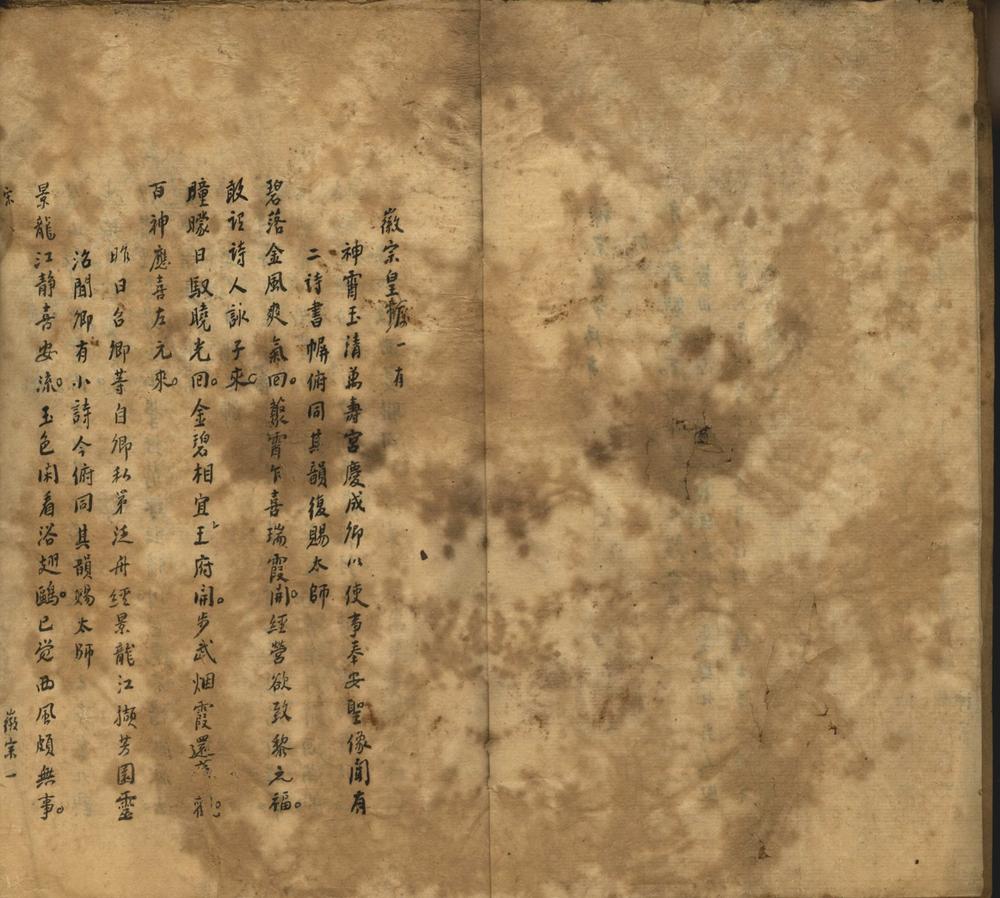 徽宗皇帝 一 有
神霄玉清萬壽宮慶成卿以使事奉安聖像聞有
二詩書幈俯同其韻復賜太師
碧落金風爽氣回。叢霄乍喜瑞霞開。經營欲致黎元福。
敢詔詩人詠子來。
曈曨日馭曉光回。金碧相宜王府開。步武烟霞還
百神應喜左元來。
昨日召卿等自卿私第泛舟經景龍江擷芳園靈
沼聞卿有小詩今俯同其韻賜太師
景龍江靜喜安流。玉色闲看浴翅鷗。已觉西風頗無事。
宗
徽宗一